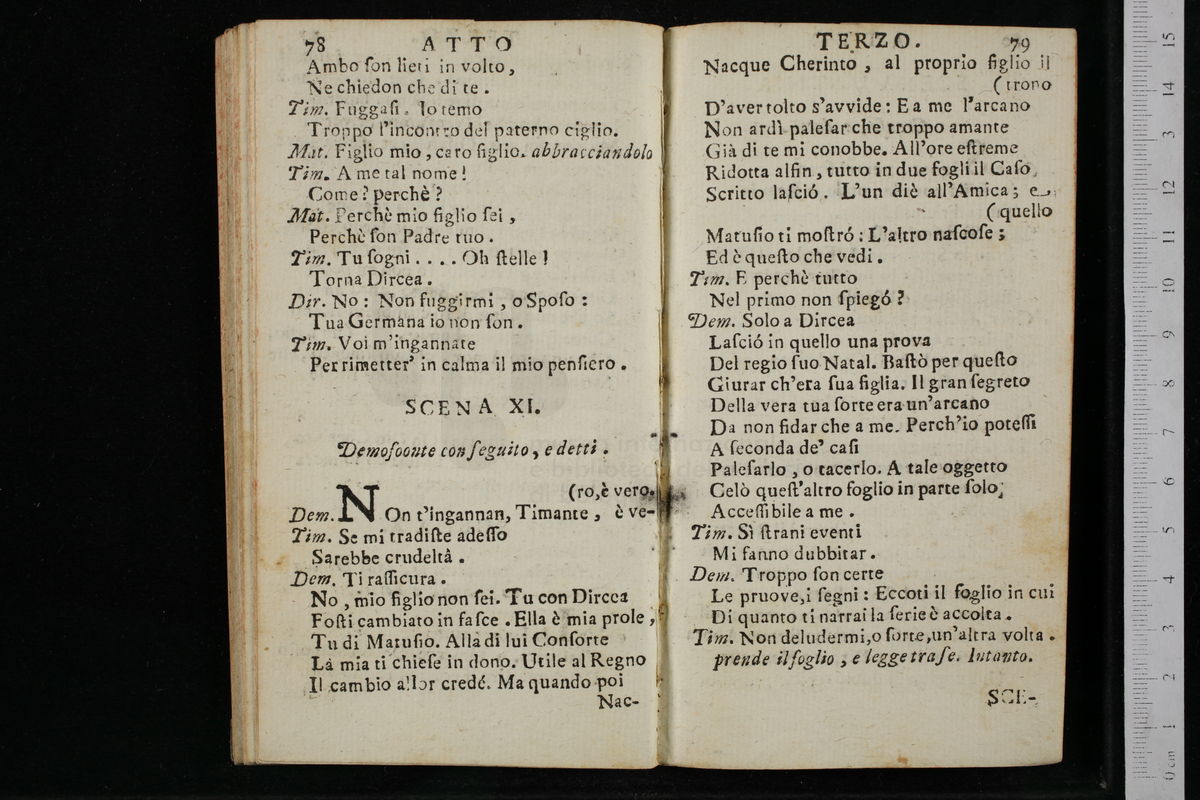 78 ATTO
Ambo ſon lieti in volto,
Ne chiedon che di te.
Tim. Fuggaſi. Io temo
Troppo l'incontro del paterno ciglio.
Mat. Figlio mio, caro figlio. abbracciandolo
Tim. A me tal nome!
Come? perchè?
Mat. Perchè mio figlio ſei,
Perchè ſon Padre tuo.
Tim. Tu ſogni.... Oh ſtelle!
Torna Dircea.
Dir. No: Non fuggirmi, o Spoſo:
Tua Germana io non ſon.
Tim. Voi m'ingannate
Per rimetter' in calma il mio penſiero.
SCENA XI.
Demofoonte con ſeguito, e detti.
(ro, è vero.
Dem. NOn t'ingannan, Timante, è ve-
Tim. Se mi tradiſte adeſſo
Sarebbe crudeltà.
Dem. Ti raſſicura.
No, mio figlio non ſei. Tu con Dircea
Foſti cambiato in faſce. Ella è mia prole,
Tu di Matuſio. Alla di lui Conſorte
La mia ti chieſe in dono. Utile al Regno
Il cambio allor credé. Ma quando poi
Nac-
TERZO. 79
Nacque Cherinto, al proprio figlio il
(trono
D'aver tolto s'avvide: E a me l'arcano
Non ardì paleſar che troppo amante
Già di te mi conobbe. All'ore eſtreme
Ridotta alfin, tutto in due fogli il Caſo
Scritto laſció. L'un diè all'Amica; e
(quello
Matuſio ti moſtró: L'altro naſcoſe;
Ed è queſto che vedi.
Tim. E perchè tutto
Nel primo non ſpiegó?
Dem. Solo a Dircea
Laſció in quello una prova
Del regio ſuo Natal. Baſtò per queſto
Giurar ch'era ſua figlia. Il gran ſegreto
Della vera tua ſorte era un'arcano
Da non fidar che a me. Perch'io poteſſi
A ſeconda de' caſi
Paleſarlo, o tacerlo. A tale oggetto
Celò queſt'altro foglio in parte ſolo,
Acceſſibile a me.
Tim. Sì ſtrani eventi
Mi fanno dubbitar.
Dem. Troppo ſon certe
Le pruove, i ſegni: Eccoti il foglio in cui
Di quanto ti narrai la ſerie è accolta.
Tim. Non deludermi, o ſorte, un'altra volta.
prende il foglio, e legge tra ſe. Intanto.
SCE-